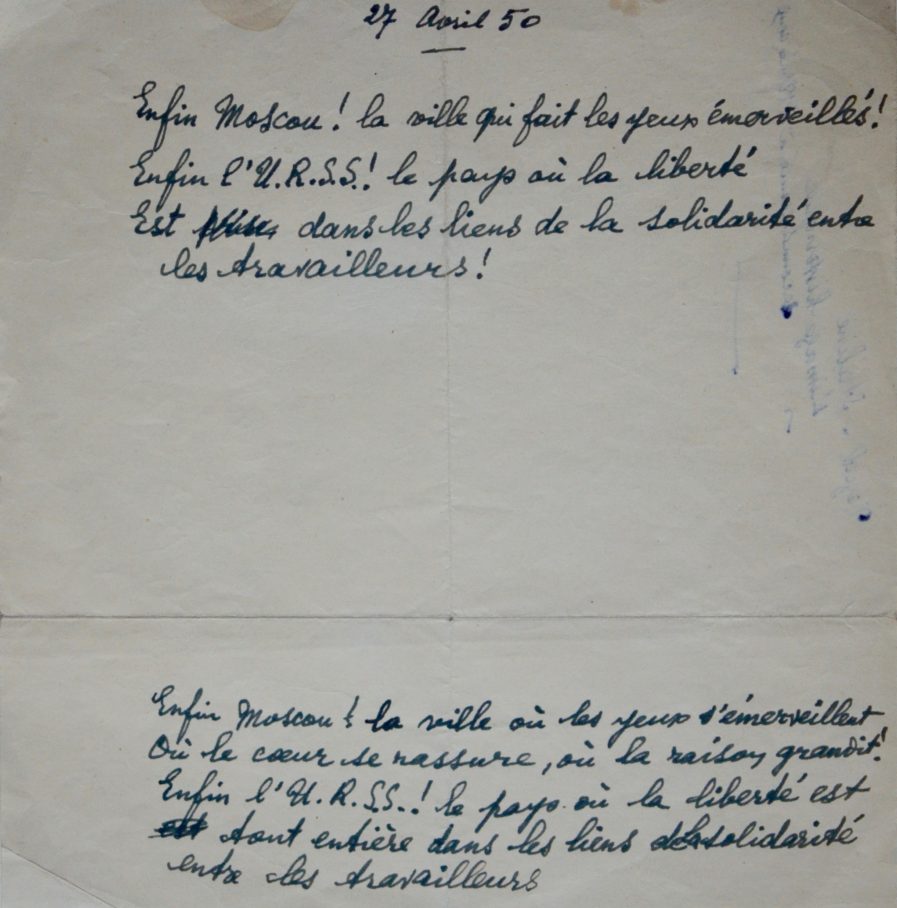 27 Avril 50
Enfin Moscou! la ville qui fait les yeux émerveillés!
Enfin l'U.R.S.S.! le pays où la liberté
Est dans les liens de la solidarité entre
les travailleurs!
Enfin Moscou! la ville où les yeux s'émerveillent
Où le cœur se rassure, où la raison grandit!
Enfin l'U.R.S.S.! le pays où la liberté est
est tout entière dans les liens de la solidarité
entre les travailleurs